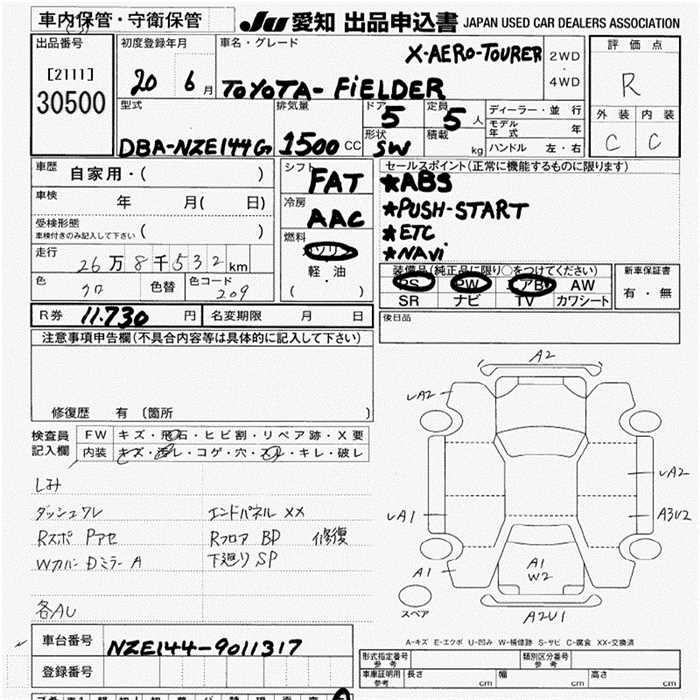 車内保管・守衛保管
JU 愛知 出品申込書 JAPAN USED CAR DEALERS ASSOCIATION
出品番号
[2111]
30500
初度登録年月
20 6 月
車名・グレード
X-AERO-TOURER
TOYOTA-FiELDER
2WD
・
4WD
評価点
R
外装 内装
C C
型式
DBA-NZE144G
排気量
1500 CC
ドア 5
形状 SW
定員 5 人
積載 kg
ディーラー・並行
モデル年式 年
ハンドル 左・右
車歴
自家用・( )
車検
年 月( 日)
受検形態
車検付きのみ記入して下さい ( )
走行
26万8千532km
色
クロ
色替
色コード
209
シフト
FAT
冷房
AAC
燃料
ガソリン
軽・油
( ・ )
セールスポイント(正常に機能するものに限ります)
*ABS
*PUSH-START
*ETC
*NAVi
装備品(純正品に限り○をつけてください)
PS PW エアB AW
SR ナビ TV カワシート
新車保証書
有・無
後日品
R券 11.730 円
名変期限 月 日
注意事項申告欄(不具合内容等は具体的に記入して下さい)
修復歴 有 〔箇所 〕
検査員
記入欄
FW キズ・飛石・ヒビ割・リペア跡・X要
内装 キズ・汚レ・コゲ・穴・スレ・キレ・破レ
シミ
ダッシュワレ
エンドパネル XX
Rスポ Pアセ
Rフロア BD 修復
Wカバー Dミラー A
下廻り SP
各AU
A2
LA2
LA2
LA1
A3U2
A1
A1
W2
A2U1
スペア
A-キズ E-エクボ U-凹み W-補修跡 S-サビ C-腐食 XX-交換済
車台番号
NZE144-9011317
登録番号
形式指定番号
参考
類別区分番号
参考
車庫証明用
参考
長さ cm
幅 cm
高さ cm